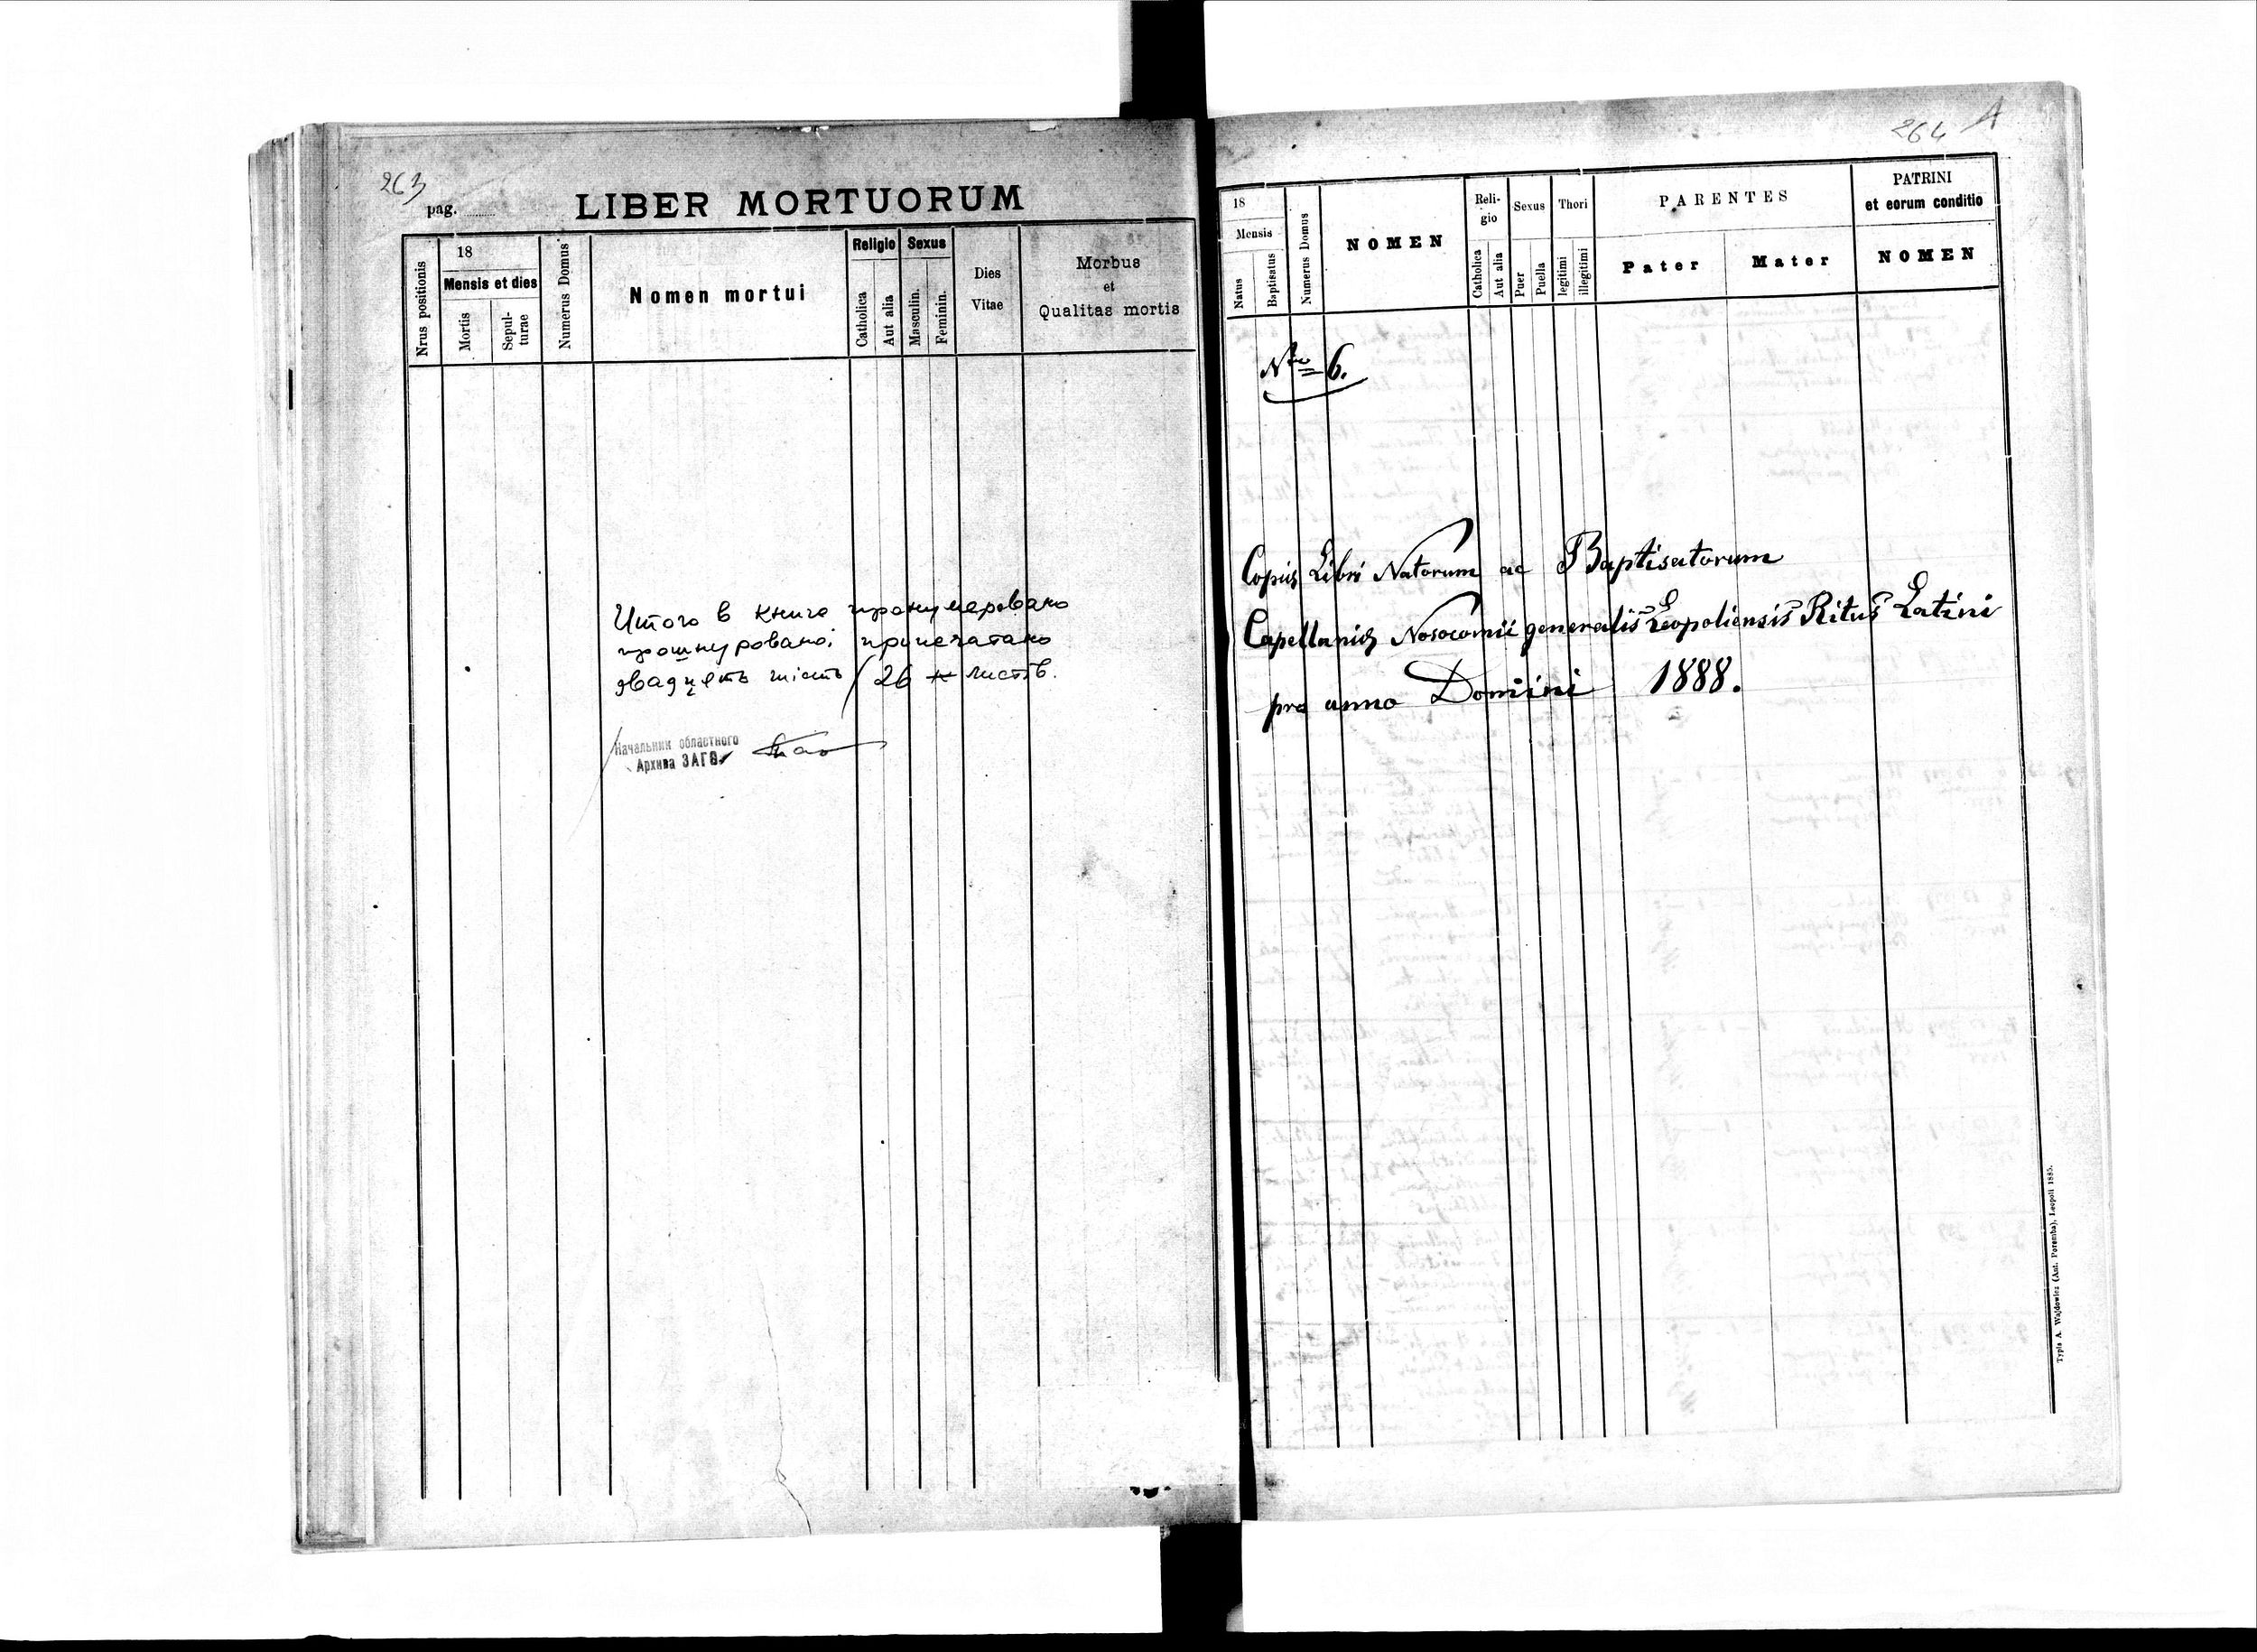 263
pag.
LIBER MORTUORUM
Nrus positionis
18
Mensis et dies
Mortis
Sepul-
turae
Numerus Domus
Nomen mortui
Religio
Catholica
Aut alia
Sexus
Masculin.
Feminin.
Dies
Vitae
Morbus
et
Qualitas mortis
Итого в книге пронумеровано
прошнуровано, припечатано
двадцять шість / 26 листів.
Начальник областного
Архива ЗАГС
264 A
18
Mensis
Natus
Baptisatus
Numerus Domus
NOMEN
Reli-
gio
Catholica
Aut alia
Sexus
Puer
Puella
Thori
legitimi
illegitimi
PARENTES
Pater
Mater
PATRINI
et eorum conditio
NOMEN
Nro 6.
Copia Libri Natorum ac Baptisatorum
Capellaniæ Nosocomii generalis Leopoliensis Ritus Latini
pro anno Domini 1888.
Typis A. Wajdowicz (Ant. Poremba), Leopoli 1885.